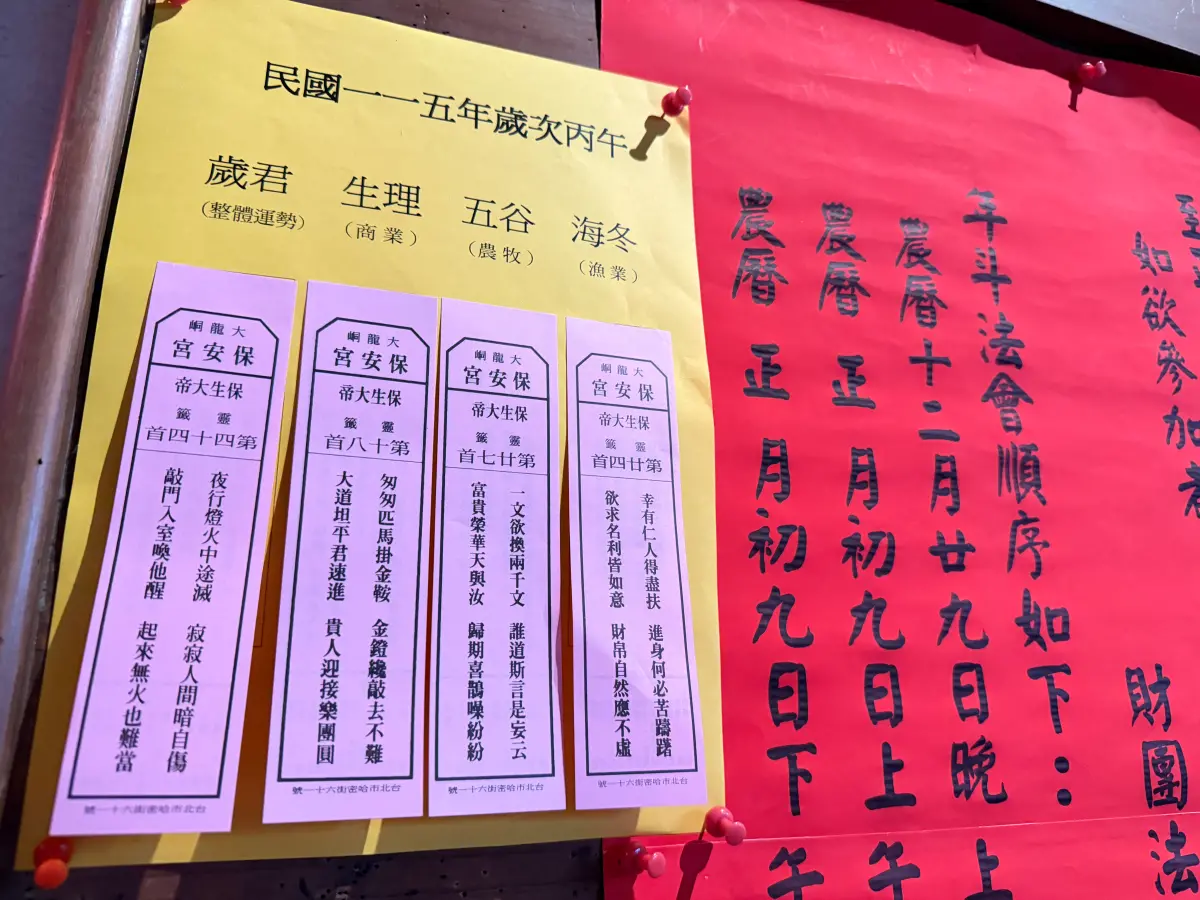 民國一一五年歲次丙午
歲君
(整體運勢)
生理
(商業)
五谷
(農牧)
海冬
(漁業)
大龍峒
保安宮
保生大帝
靈籤
第四十四首
夜行燈火中途滅
寂寂人間暗自傷
敲門入室喚他醒
起來無火也難當
台北市哈密街六十一號
大龍峒
保安宮
保生大帝
靈籤
第十八首
匆匆匹馬掛金鞍
金鐙纔敲去不難
大道坦平君速進
貴人迎接樂團圓
台北市哈密街六十一號
大龍峒
保安宮
保生大帝
靈籤
第廿七首
一文欲換兩千文
誰道斯言是妄云
富貴榮華天與汝
歸期喜鵲噪紛紛
台北市哈密街六十一號
大龍峒
保安宮
保生大帝
靈籤
第廿四首
幸有仁人得盡扶
進身何必苦躊躇
欲求名利皆如意
財帛自然應不虛
台北市哈密街六十一號
如欲參加者
財團法
年斗法會順序如下：
農曆十二月廿九日晚上
農曆正月初九日上午
農曆正月初九日下午